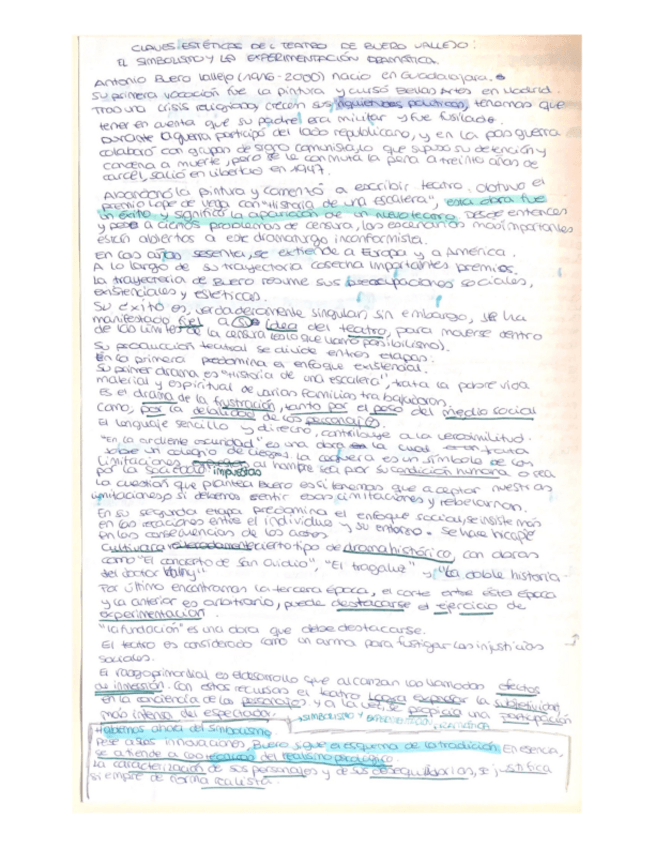 CLAVES ESTÉTICAS DEL TEATRO DE BUERO VALLEJO:
EL SIMBOLISTO Y LA EXPERIMENTACIÓN DRAMÁTICA.
Antonio Buero Vallejo (1916-2000) nació en Guadalajara.
Su primera vocación fue la pintura y cursó Bellas Artes en Madrid.
Tras una crisis religiosa, crecen sus inquietudes políticas, tenemos que
tener en cuenta que su padre era militar y fue fusilado.
Durante la guerra participó del lado republicano, y en la posguerra
colaboró con grupos de signo comunista, lo que supuso su detención y
condena a muerte, pero se le conmuta la pena a treinta años de
carcel, salió en libertad en 1947.
Abandonó la pintura y comenzó a escribir teatro. Obtuvo el
premio Lope de Vega con "Historia de una escalera", esta obra fue
un éxito y significó la aparición de un nuevo teatro. Desde entonces
y pese a ciertos problemas de censura, los escenarios más importantes
están abiertos a este dramaturgo inconformista.
En los años sesenta, se extiende a Europa y a América.
A lo largo de su trayectoria cosecha importantes premios.
La trayectoria de Buero resume sus preocupaciones sociales,
existenciales y estéticas.
Su éxito es, verdaderamente singular, sin embargo, se ha
manifestado fiel a su idea del teatro, para moverse dentro
de los límites de la censura (es lo que llamó posibilismo).
Su producción teatral se divide en tres etapas:
En la primera predomina el enfoque existencial.
Su primer drama es "Historia de una escalera", trata la pobre vida
material y espiritual de varias familias trabajadoras.
Es el drama de la frustración, tanto por el peso del medio social
como, por la debilidad de los personajes.
El lenguaje sencillo y directo, contribuye a la verosimilitud.
"En la ardiente oscuridad" es una obra en la cual trata
sobre un colegio de ciegos. La ceguera es un símbolo de las
limitaciones impuestas al hombre sea por su condición humana o sea
por la sociedad
La cuestión que plantea Buero es si tenemos que aceptar nuestras
limitaciones, o si debemos sentir esas limitaciones y rebelarnos.
En su segunda etapa predomina el enfoque social, se insiste más
en las relaciones entre el individuo y su entorno. Se hace hincapié
en las consecuencias de los actos.
Cultivará cierto tipo de drama histórico, con obras
como "El concierto de San Ovidio", "El tragaluz" y "La doble historia
del doctor Valmy"
Por último encontramos la tercera época, el corte entre esta época
y la anterior es arbitrario, puede destacarse el ejercicio de
experimentación.
"La fundación" es una obra que debe destacarse.
El teatro es considerado como un arma para fustigar las injusticias
sociales.
El rasgo primordial es el desarrollo que alcanzan los llamados efectos
de inmersión. Con estos recursos el teatro logra expresar la subjetividad
en la conciencia de los personajes. Y a la vez, se propicia una participación
más intensa del espectador.
Hablemos ahora del simbolismo
Pese a las innovaciones, Buero sigue el esquema de la tradición. En esencia,
se atiende a las técnicas del realismo psicológico.
La caracterización de sus personajes y de sus desequilibrios, se justifica
siempre de forma realista.